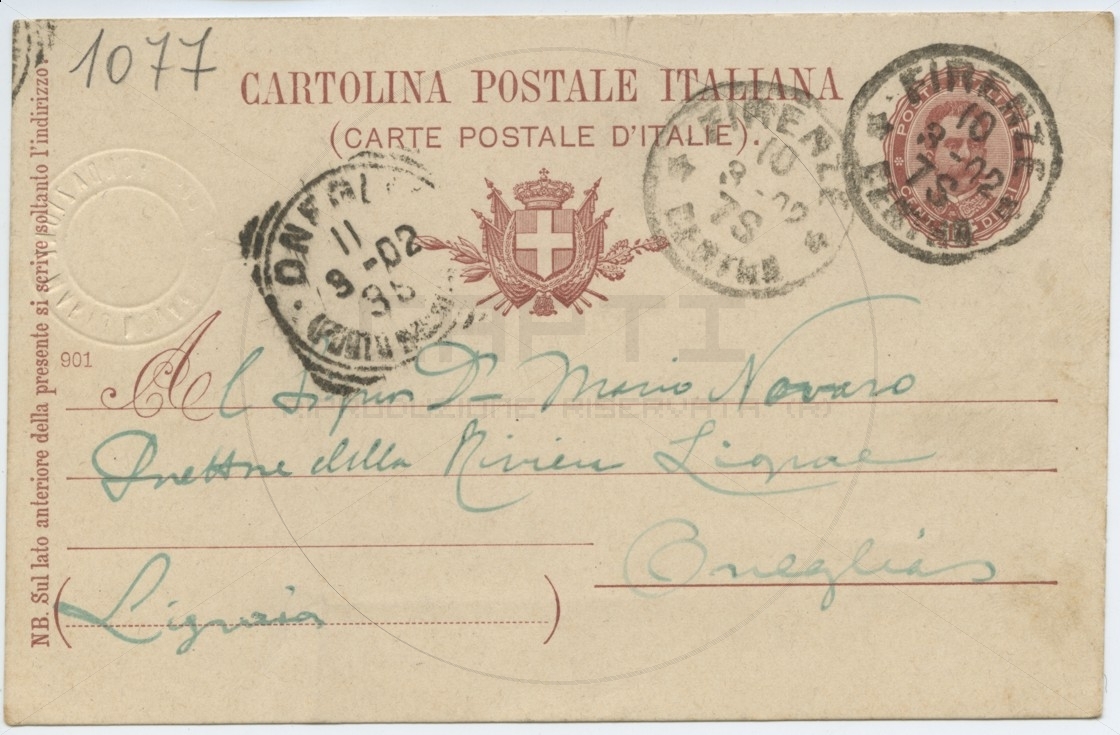 1077
CARTOLINA POSTALE ITALIANA
(CARTE POSTALE D'ITALIE).
FIRENZE
10
9 -02
7S
CENTRO
FIRENZE
10
9 -02
7S
ONEGLIA
11
9 -02
8S
NB. Sul lato anteriore della presente si scrive soltanto l'indirizzo.
901
Al Signor Dr Mario Novaro
Direttore della Riviera Ligure
Oneglia
(Liguria)
RIPRODUZIONE RISERVATA (R)